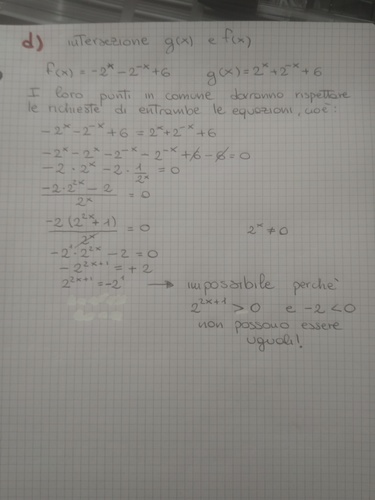 d) intersezione g(x) e f(x)
f(x) = -2^x - 2^-x + 6 g(x) = 2^x + 2^-x + 6
I loro punti in comune dovranno rispettare
le richieste di entrambe le equazioni, cioè:
-2^x - 2^-x + 6 = 2^x + 2^-x + 6
-2^x - 2^x - 2^-x - 2^-x + 6 - 6 = 0
-2 · 2^x - 2 · 1/2^x = 0
(-2 · 2^2x - 2)/2^x = 0
(-2 (2^2x + 1))/2^x = 0 2^x ≠ 0
-2^1 · 2^2x - 2 = 0
-2^2x+1 = +2
2^2x+1 = -2^1 → impossibile perchè
2^2x+1 > 0 e -2 < 0
non possono essere
uguali!